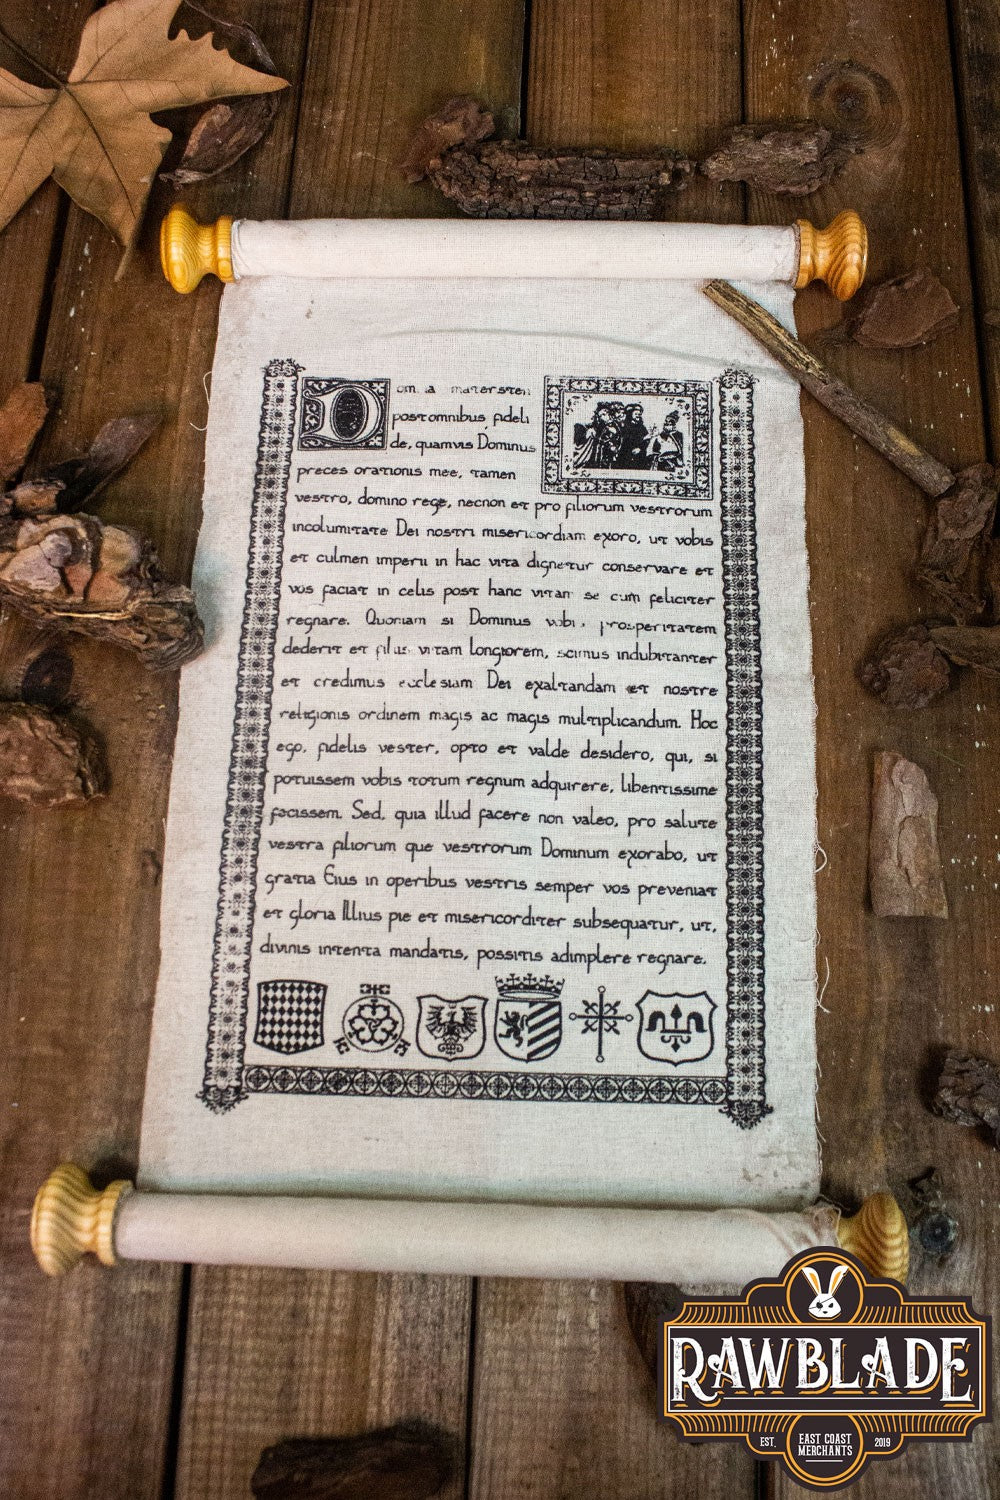 Dom
post omnibus fideli
de, quamvis Dominus
preces orationis mee, tamen
vestro, domino rege, necnon et pro filiorum vestrorum
incolumitate Dei nostri misericordiam exoro, ut vobis
et culmen imperii in hac vita dignetur conservare et
vos faciat in celis post hanc vitam se cum feliciter
regnare. Quoniam si Dominus vobis prosperitatem
dederit et filiis vitam longiorem, scimus indubitanter
et credimus ecclesiam Dei exaltandam et nostre
religionis ordinem magis ac magis multiplicandum. Hoc
ego, fidelis vester, opto et valde desidero, qui, si
potuissem vobis totum regnum adquirere, libentissime
facissem. Sed, quia illud facere non valeo, pro salute
vestra filiorum que vestrorum Dominum exorabo, ut
gratia Eius in operibus vestris semper vos preveniat
et gloria Illius pie et misericorditer subsequatur, ut,
divinis intenta mandatis, possitis adimplere regnare.
RAWBLADE
EST. EAST COAST MERCHANTS 2019